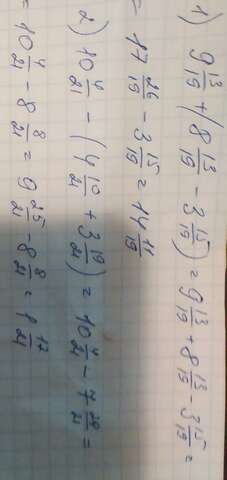 1) 9 13/19 + (8 13/19 - 3 15/19) = 9 13/19 + 8 13/19 - 3 15/19 =
= 17 26/19 - 3 15/19 = 14 11/19
2) 10 4/21 - (4 10/21 + 3 19/21) = 10 4/21 - 7 29/21 =
= 10 4/21 - 8 8/21 = 9 25/21 - 8 8/21 = 1 17/21